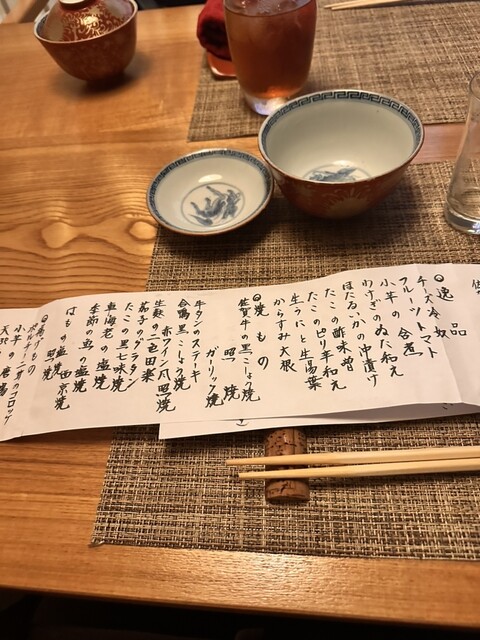 ◎逸品
チーズ冷奴
フルーツトマト
小芋の含煮
わけぎのぬた和え
ほたるいかの沖漬け
たこの酢味噌
たこのピリ辛和え
生うにと生湯葉
からすみ大根
◎焼もの
佐賀牛の黒こしょう焼
照焼
ガーリック焼
牛タンのステーキ
合鴨黒こしょう焼
赤ワイン 照焼
生麩の二色田楽
茄子のグラタン
たこの黒七味焼
車海老の塩焼
季節の魚の塩焼
照焼
西京焼
はもの塩焼
◎揚げもの
のコロッケ
小芋の唐揚